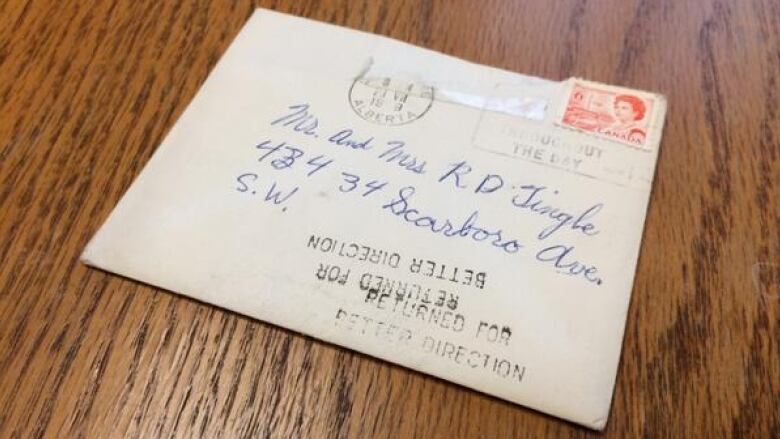 ALBERTA
6
CANADA
THROUGHOUT
THE DAY
Mr. And Mrs R D Tingle
434 34 Scarboro Ave.
S.W.
RETURNED FOR
BETTER DIRECTION
RETURNED FOR
BETTER DIRECTION